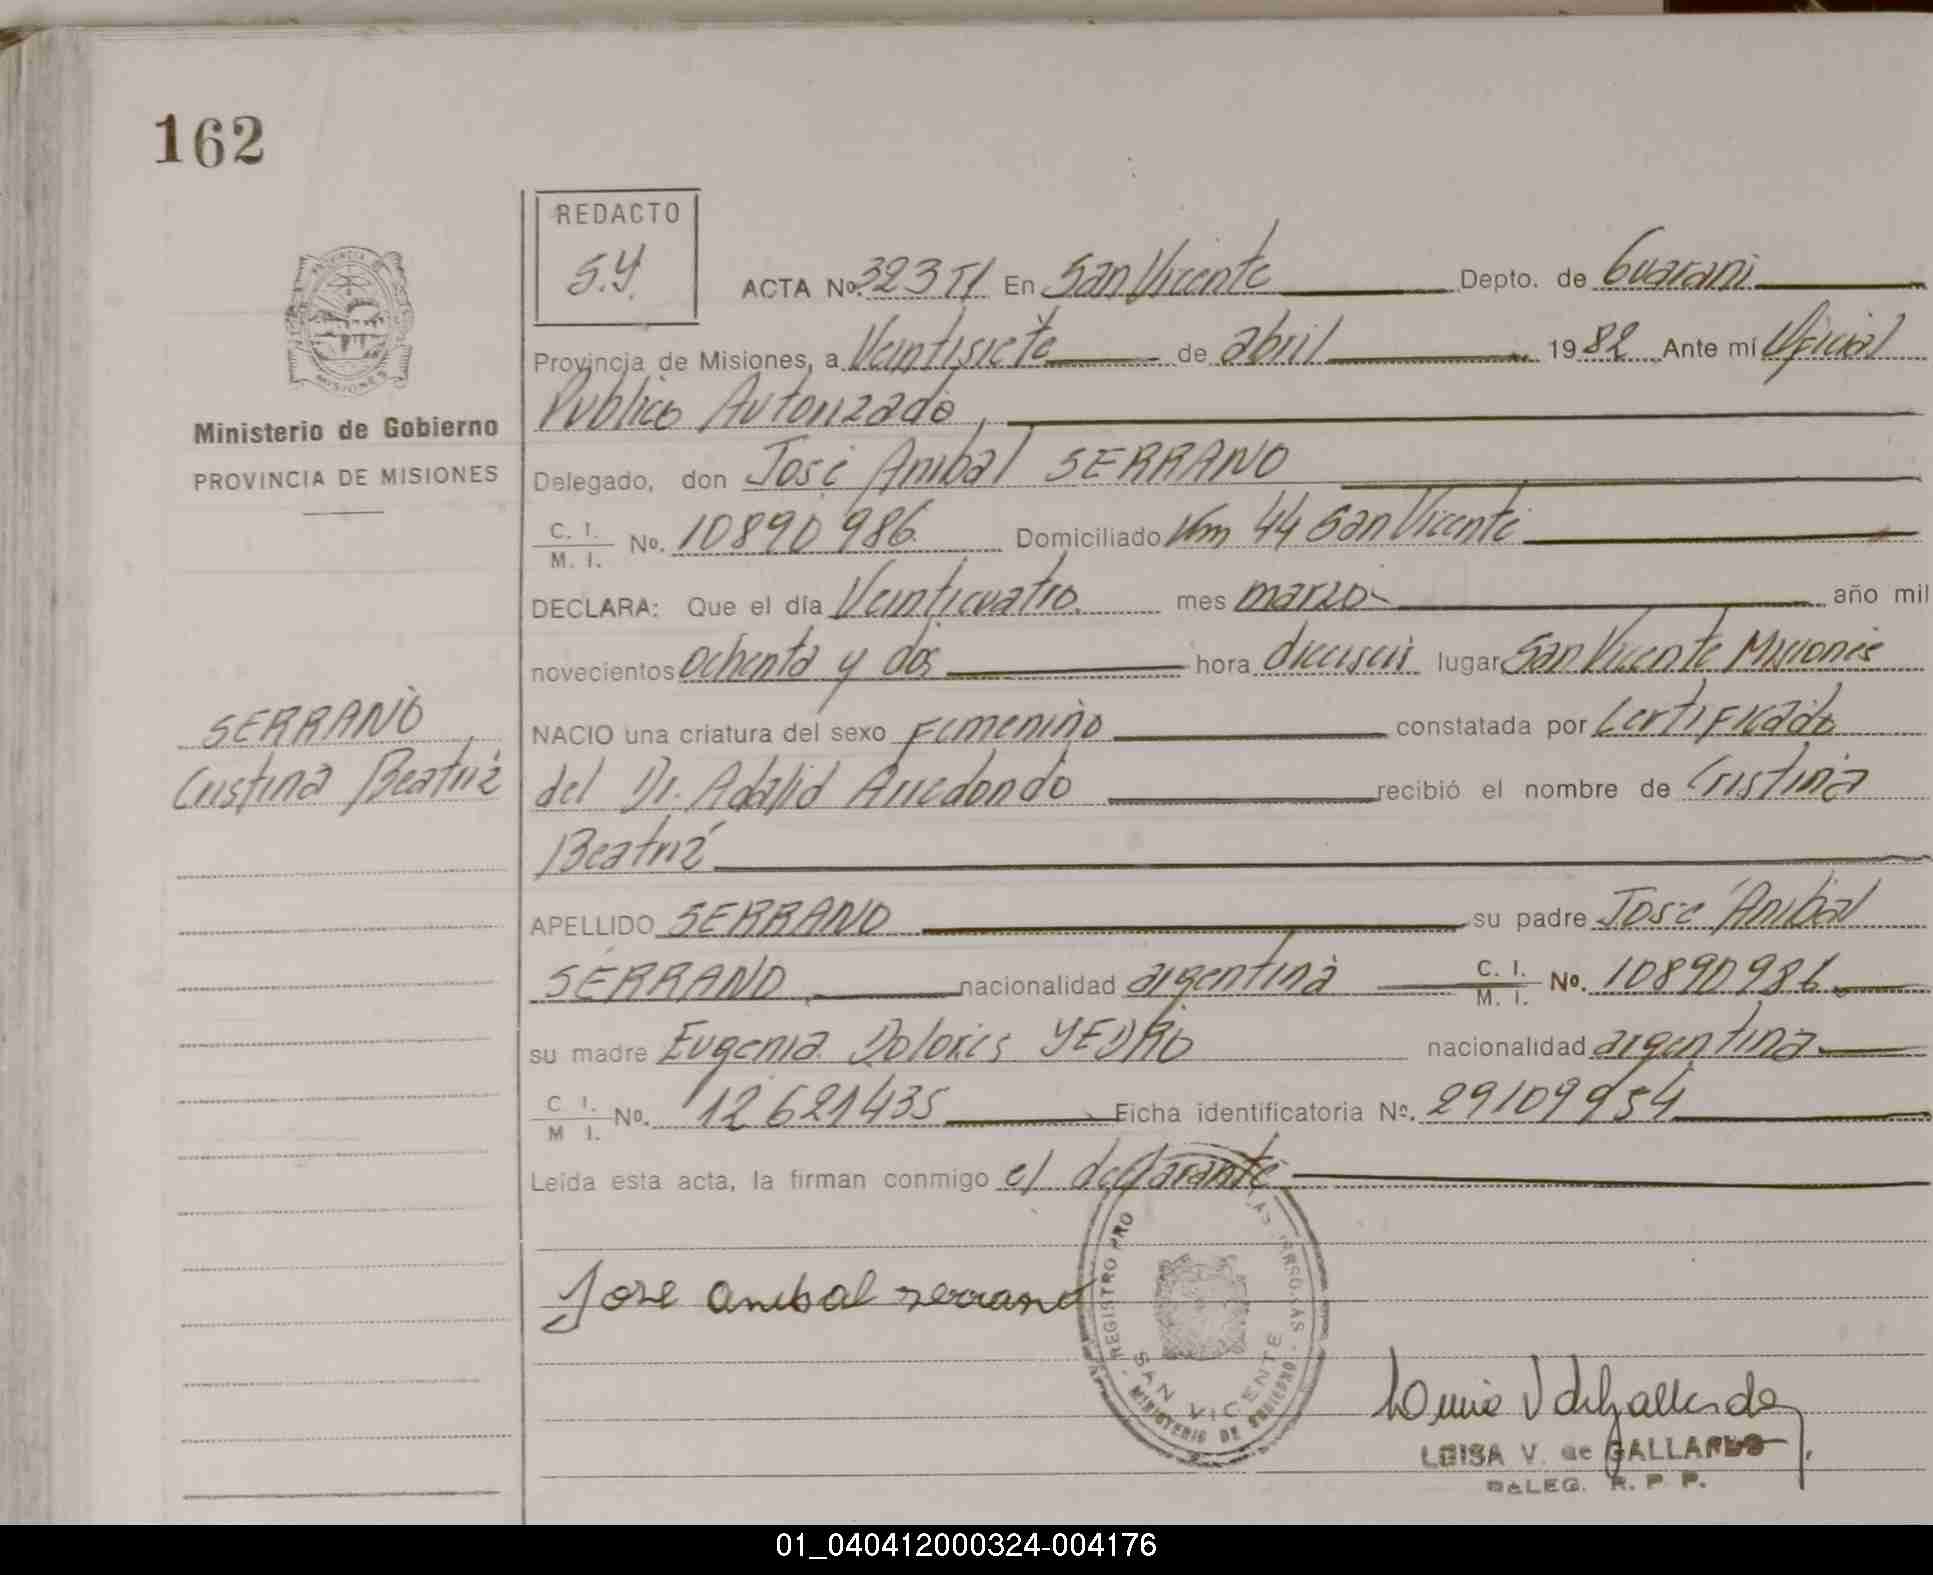 162
REDACTO
S.Y.
ACTA No. 323 TI En San Vicente Depto. de Guarani
Provincia de Misiones, a Veintisiete de abril 1982 Ante mí Oficial
Publico Autorizado
Ministerio de Gobierno
PROVINCIA DE MISIONES
Delegado, don José Anibal SERRANO
C. I. / M. I. No. 10890986 Domiciliado Km 44 San Vicente
DECLARA: Que el día Veinticuatro mes marzo año mil
novecientos ochenta y dos hora dieciseis lugar San Vicente Misiones
SERRANO
Cristina Beatriz
NACIO una criatura del sexo Femenino constatada por Certificado
del Dr. Adalid Arredondo recibió el nombre de Cristina
Beatriz
APELLIDO SERRANO su padre José Anibal
SERRANO nacionalidad argentina C. I. / M. I. No. 10890986
su madre Eugenia Dolores YEDRO nacionalidad argentina
C. I. / M. I. No. 12621435 Ficha identificatoria No. 29109954
Leída esta acta, la firman conmigo el declarante
Jose anibal serrano
REGISTRO PRO
SAN VICENTE
MINISTERIO DE GOBIERNO
LUISA V. de GALLARDO
DELEG. R. P. P.
01_040412000324-004176